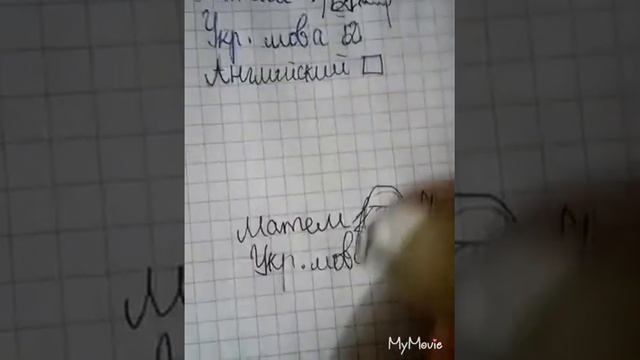 Укр. мова
Английский
Матем
Укр. мов
MyMovie